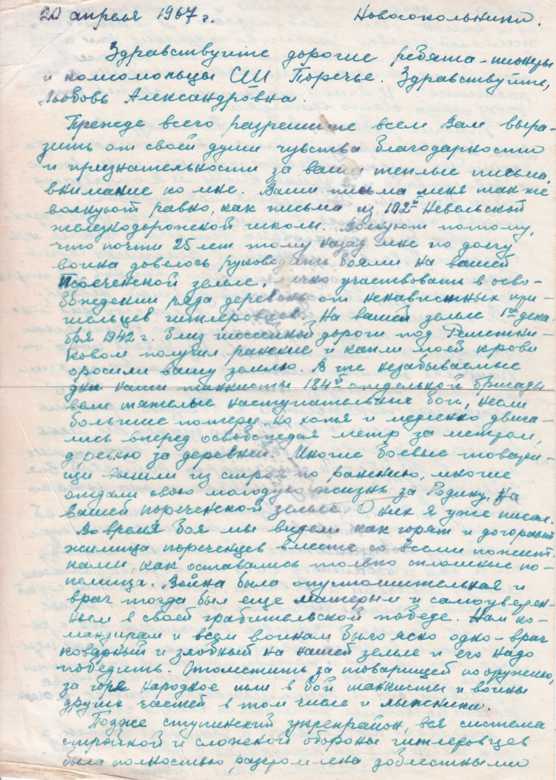 20 апреля 1967 г. Новосокольники.
Здравствуйте дорогие ребята-пионеры
и комсомольцы СШ Поречье. Здравствуйте,
Любовь Александровна.
Прежде всего разрешите всем Вам выра-
зить от своей души чувства благодарности
и признательности за ваши теплые письма,
внимание ко мне. Ваши письма меня так же
волнуют равно, как письма из 192й Невельской
железнодорожной школы. Волнуют потому,
что почти 25 лет тому назад мне по долгу
воина довелось руководить боями на вашей
Пореченской земле, лично участвовать в осво-
бождении ряда деревень от ненавистных при-
шельцев гитлеровцев. На вашей земле 1го дека-
бря 1942 г. близ шоссейной дороги под
получил ранение и капли моей крови
оросили вашу землю. В те незабываемые
дни наши танкисты 184й стрелковой бригады
вели тяжелые наступательные бои, несли
большие потери, но хотя и медленно двига-
лись вперед освобождая метр за метром,
деревню за деревней. Многие боевые товари-
щи вышли из строя по ранению, многие
отдали свою молодую жизнь за Родину, на
вашей пореченской земле. О них я уже писал.
Во время боя мы видели как горят и догорают
жилища пореченцев вместе со всеми пожит-
ками, как оставались только сплошные пе-
пелища. Война была опустошительная и
враг тогда был еще матерым и самоуверен-
ным в своей грабительской победе. Нам ко-
мандирам и всем воинам было ясно одно - враг
коварный и злобный на нашей земле и его надо
победить. Отомстить за товарищей по оружию,
за горе народное шли в бой танкисты и воины
других частей в том числе и лыжники.
Позже ступинский укрепрайон, вся система
стройной и сложной обороны гитлеровцев
была полностью разгромлена доблестными